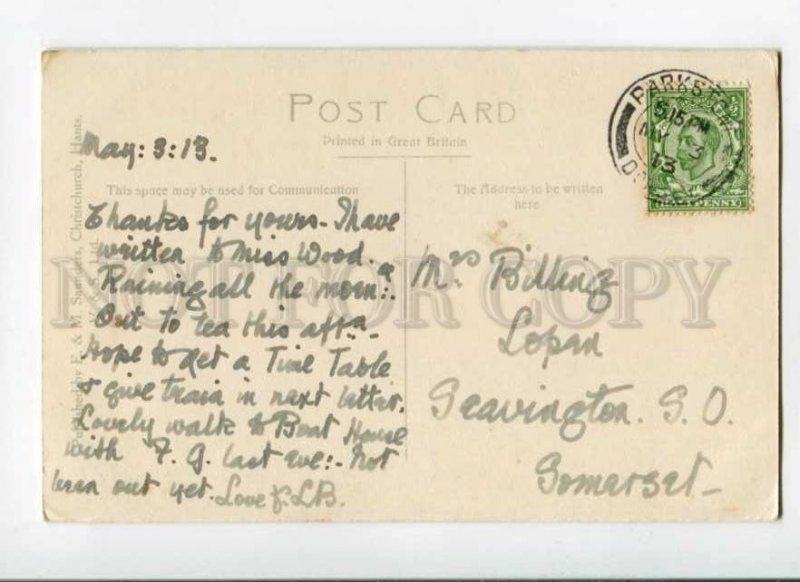 POST CARD
Printed in Great Britain
May: 3: 13.
This space may be used for Communication
The Address to be written
here
Thanks for yours - I have
written to Miss Wood.
Raining all the morn:.
Out to tea this aft:
Hope to get a Time Table
& give train in next letter.
Lovely walk to Boat House
with F. G. last eve:- Not
been out yet. Love LB.
Mrs Billing
Lopen
Seavington. S. O.
Somerset-
PARKSTON
5 15 PM
MY 3
13
PENNY
Published by F. & M. Saunders, Christchurch, Hants.
NOT FOR COPY